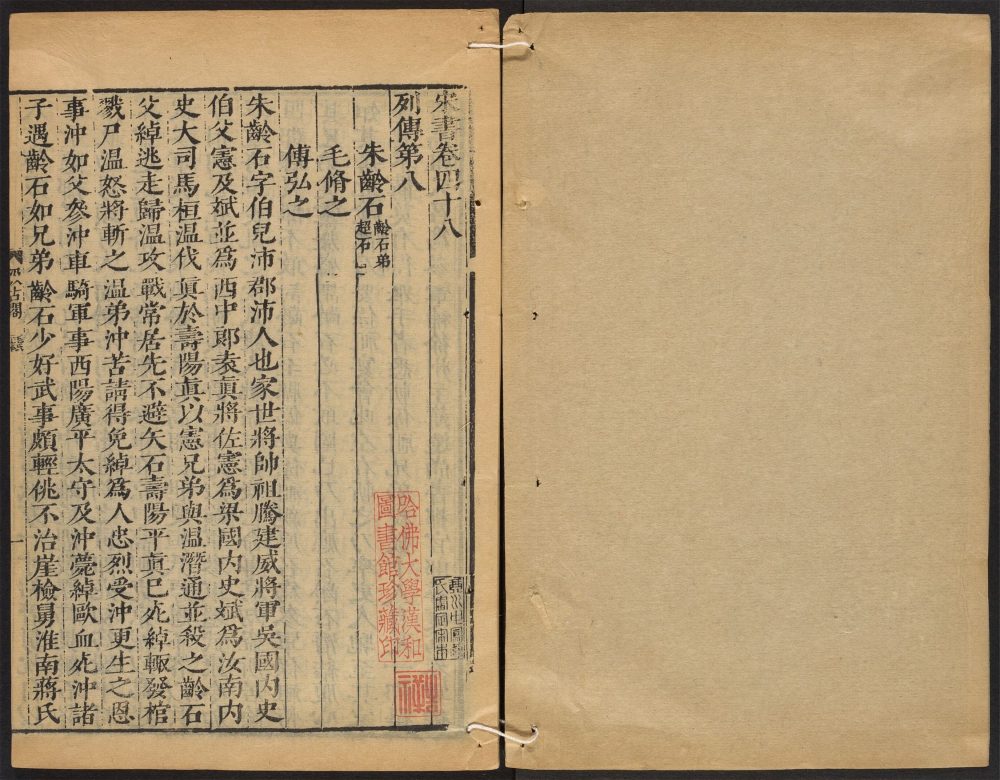 宋書卷四十八
列傳第八
朱齡石 齡石弟超石
毛脩之
傅弘之
朱齡石字伯兒沛郡沛人也家世將帥祖騰建威將軍吳國內史
伯父憲及斌並爲西中郎袁眞將佐憲爲梁國內史斌爲汝南內
史大司馬桓溫伐眞於壽陽眞以憲兄弟與溫潛通並殺之齡石
父綽逃走歸溫攻戰常居先不避矢石壽陽平眞巳死綽輙發棺
戮尸溫怒將斬之溫弟沖苦請得免綽爲人忠烈受沖更生之恩
事沖如父叅沖車騎軍事西陽廣平太守及沖薨綽歐血死沖諸
子遇齡石如兄弟齡石少好武事頗輕佻不治崖檢舅淮南蔣氏
哈佛大學漢和
圖書館珍藏印